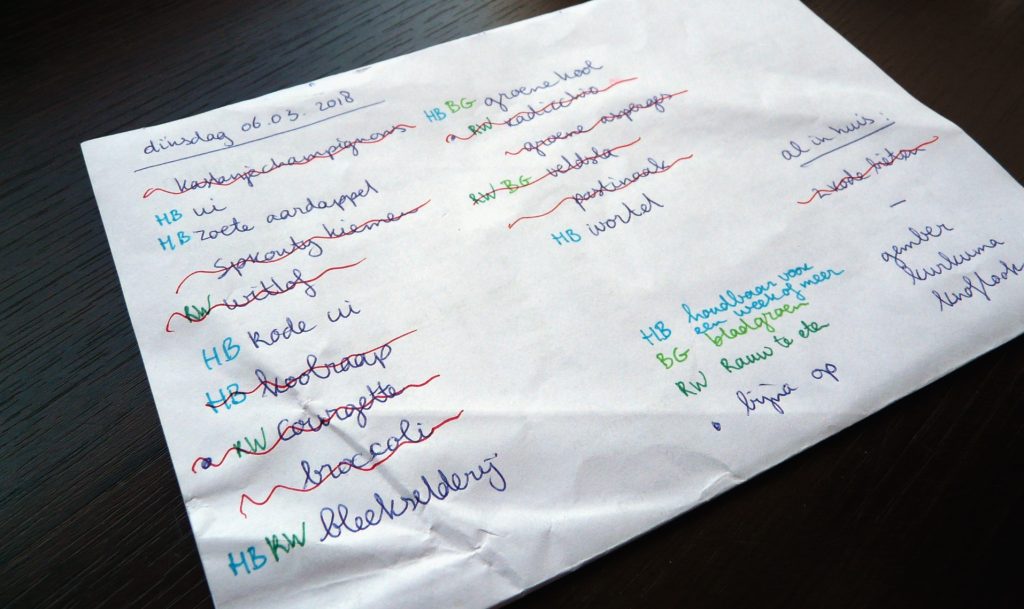 dinsdag 06.03.2018
kastanjechampignons
HB ui
HB zoete aardappel
Sprouty kiemen
RW witlof
HB Rode ui
HB koolraap
RW courgette
broccoli
HB RW bleekselderij
HB BG groene kool
RW radicchio
groene asperges
RW BG veldsla
pastinaak
HB wortel
al in huis:
rode bieten
gember
kurkuma
knoflook
HB houdbaar voor
een week of meer
BG bladgroen
RW Rauw te eten
• bijna op